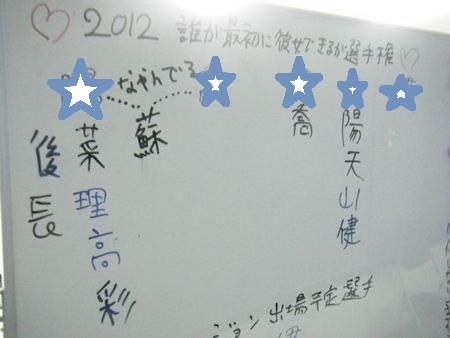 ♡2012 誰が最初に彼女できるか選手権♡
なやんでる
陽天山健
喬
蘇
菜理高彩
後長
ジョン出場予定選手